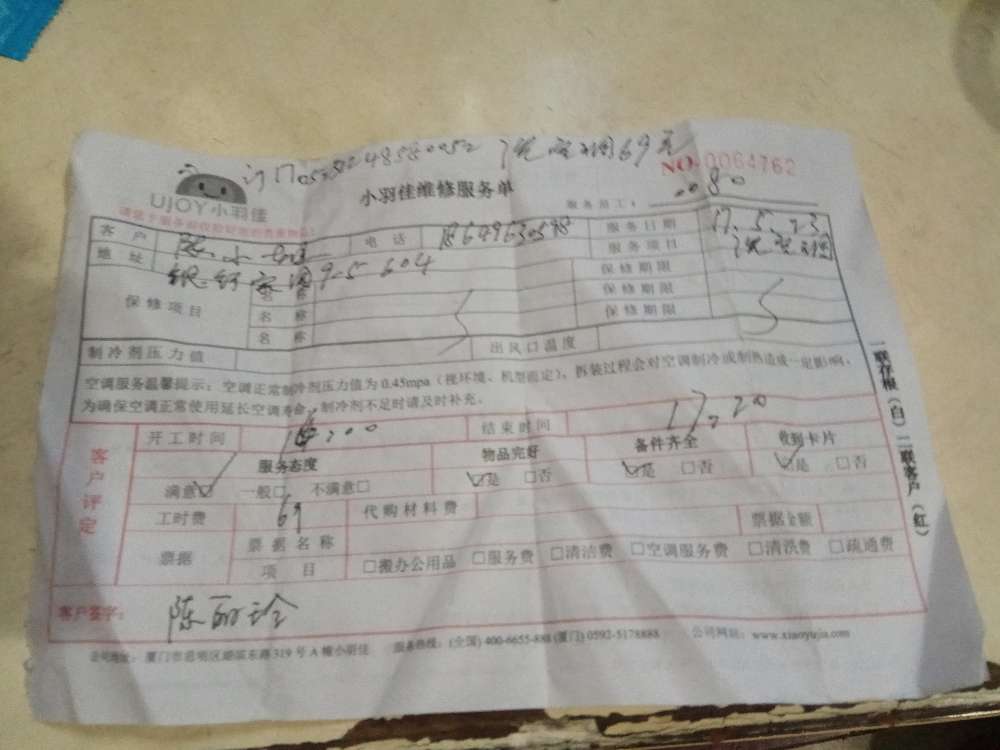 洗空调69元
NO:0064762
UJOY小羽佳
小羽佳维修服务单
服务员工: 0080
客户 陈小姐 电话 服务日期 17.5.23
地址 604 服务项目 洗空调
保修项目 名称 保修期限
名称 保修期限
名称 保修期限
制冷剂压力值 出风口温度
空调服务温馨提示:空调正常制冷剂压力值为0.45mpa(视环境、机型而定),拆装过程会对空调制冷或制热造成一定影响。
为确保空调正常使用延长空调寿命,制冷剂不足时请及时补充。
开工时间 结束时间 17:20
客户评定
服务态度 物品完好 备件齐全 收到卡片
满意☑ 一般□ 不满意□ ☑是 □否 ☑是 □否 ☑是 □否
工时费 69 代购材料费 票据金额
票据 票据名称
项目 □搬办公用品 □服务费 □清洁费 □空调服务费 □清洗费 □疏通费
客户签字: 陈丽珍
公司地址:厦门市思明区湖滨东路319号A幢小羽佳 服务热线:(全国) 400-6655-888 (厦门) 0592-5178888 公司网站:www.xiaoyujia.com
一联存根(白)二联客户(红)